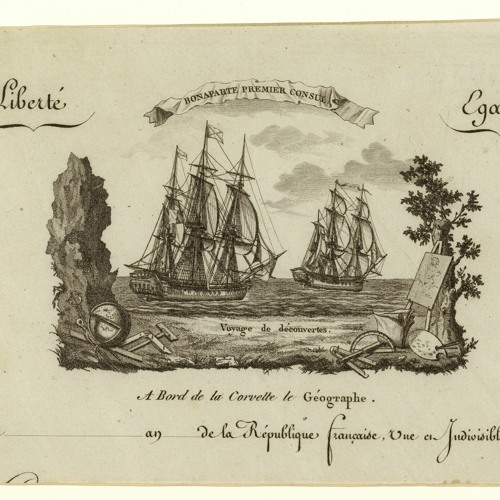 BONAPARTE PREMIER CONSUL
Liberté
Voyage de découvertes.
A Bord de la Corvette le Géographe.
an de la République française, Une et